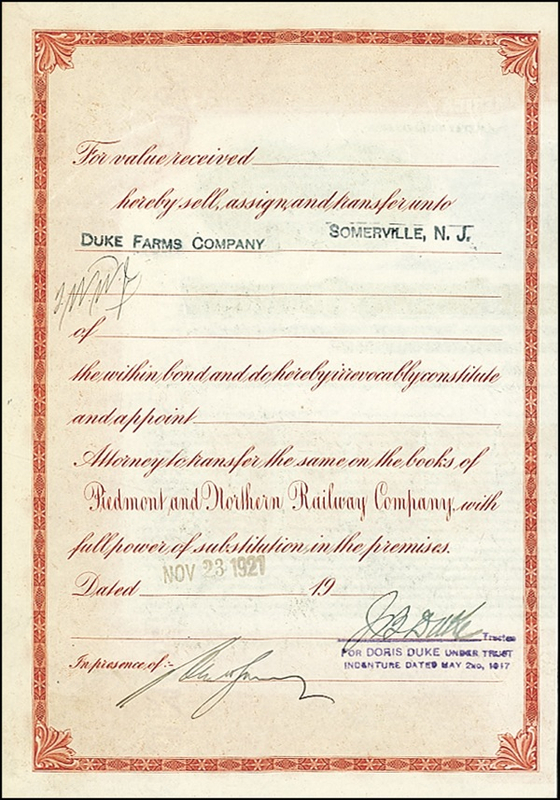 For value received
hereby sell, assign, and transfer unto
DUKE FARMS COMPANY SOMERVILLE, N. J.
of
the within bond and do hereby irrevocably constitute
and appoint
Attorney to transfer the same on the books of
Piedmont and Northern Railway Company, with
full power of substitution in the premises.
Dated NOV 23 1921 19
J B Duke Trustee
FOR DORIS DUKE UNDER TRUST
INDENTURE DATED MAY 2ND, 1917
In presence of:-